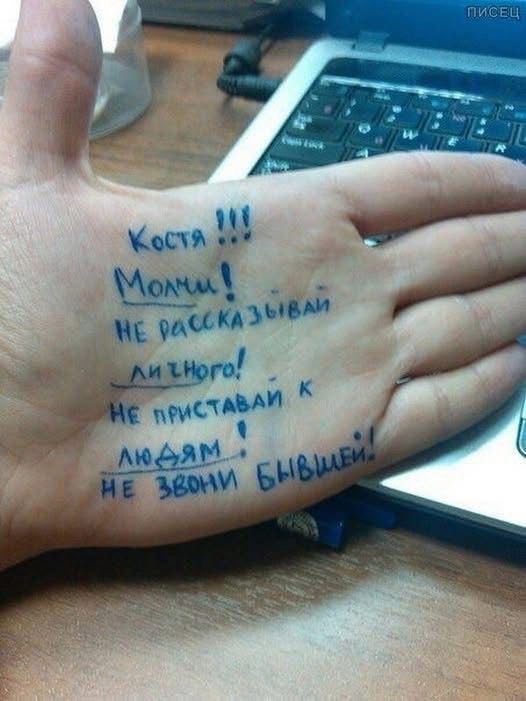 ПИСЕЦ
Костя !!!
Молчи!
НЕ РАССКАЗЫВАЙ
ЛИЧНОГО!
НЕ ПРИСТАВАЙ К
ЛЮДЯМ !
НЕ ЗВОНИ БЫВШЕЙ!